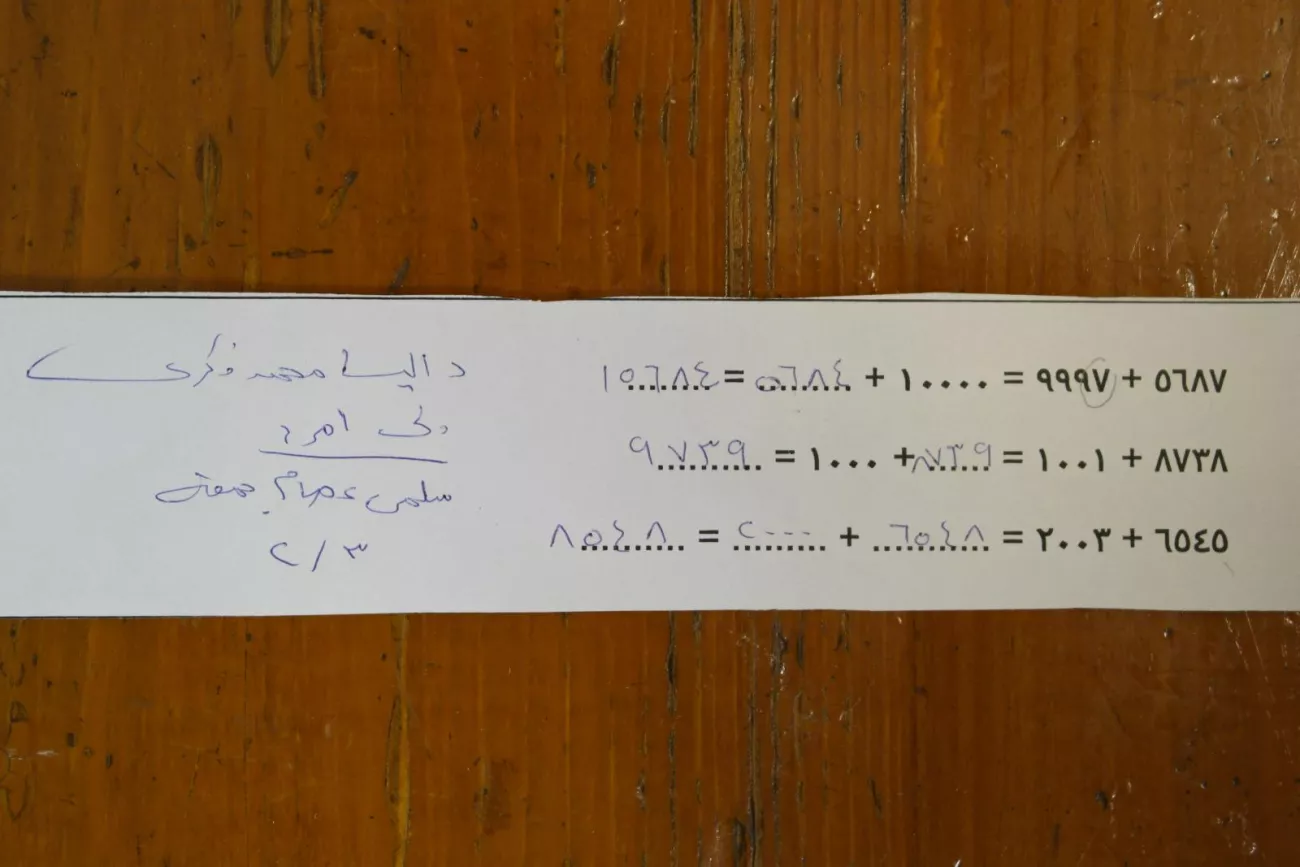 ٥٦٨٧ + ٩٩٩٧ = ١٠٠٠٠ + ٥٦٨٤ = ١٥٦٨٤
٨٧٣٨ + ١٠٠١ = ٨٧٣٩ + ١٠٠٠ = ٩٧٣٩
٦٥٤٥ + ٢٠٠٣ = ٦٥٤٨ + ٢٠٠٠ = ٨٥٤٨
داليا محمد فكرى
سلمى عصام جمعة
٣/٢